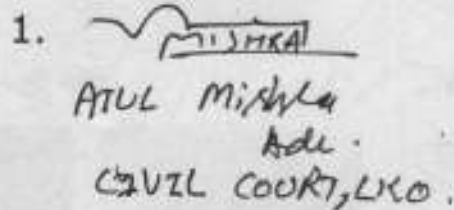 1. MISHRA
ATUL Mishra
Adv.
CIVIL COURT, LKO.